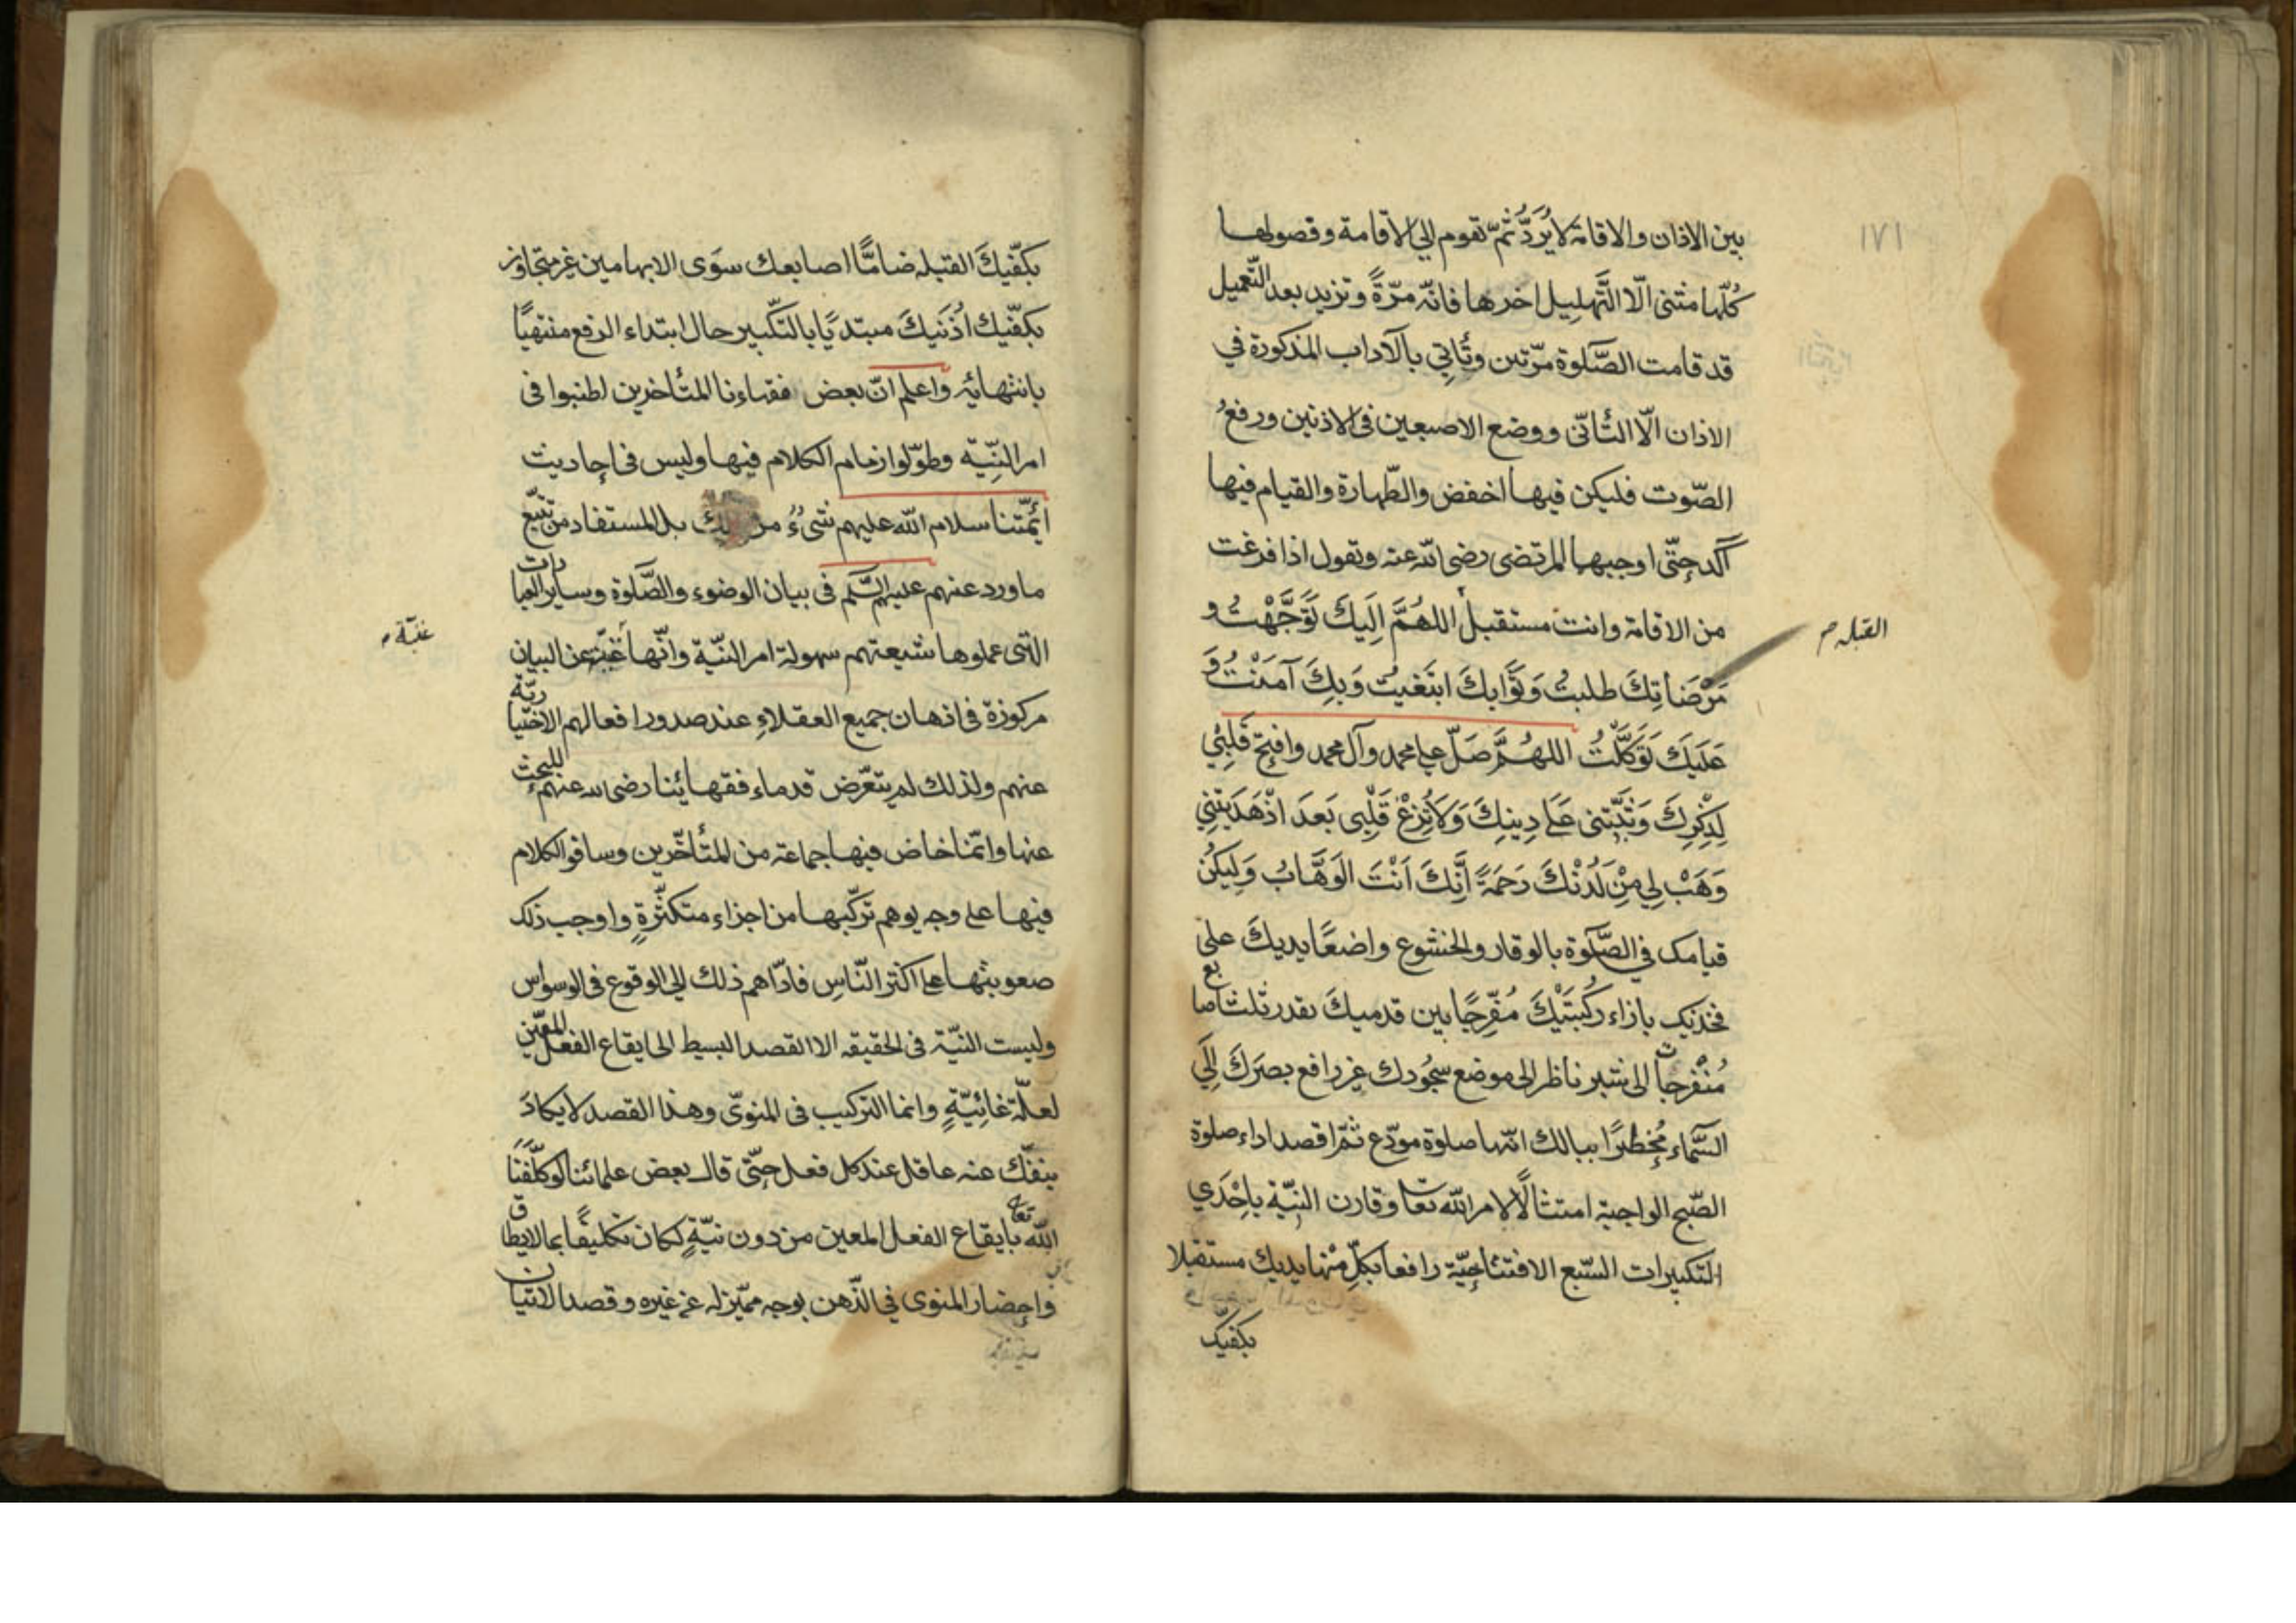 ١٧١
بين الاذان والاقامة لا يُرَدُّ ثُمّ تقوم الي الاقامة وفصولها
كُلّها مثنى الّا التَّهلِيل اخرها فانّه مرّةً وتزيد بعد التّعميل
قد قامت الصَّلوة مرّتين وتُأتِي بالآداب المذكورة في
الاذان الّا التّأنّى ووضع الاصبعين فى الاذنين ورفعُ
الصّوت فليكن فيها اخفض والطّهارة والقيام فيها
آكد حتّى اوجبهما المرتضى رضى الله عنه وتقول اذا فرغت
من الاقامة وانت مستقبل اللهُمَّ اِلَيكَ تَوَجَّهْتُ و
القبله م
مَرْضَاتِكَ طلبتُ وَثَوابكَ ابتَغَيتُ وَبِكَ آمَنْتُ وَ
عَلَيكَ تَوَكَّلْتُ اللهُمَّ صَلّ على محمد وآل محمد وافتِح قَلبِي
لِذِكرِكَ وَثَبِّتنى عَلى دِينِكَ وَلَا تُزِغْ قَلْبِى بَعدَ اذْ هَدَيتَنِي
وَهَبْ لِي مِنْ لَدُنْكَ رَحمَةً اِنَّكَ اَنْتَ الوَهَّابُ وَليكُن
قيامك في الصَّلوة بالوقار والخشوع واضعًا يديكَ على
فخذيك بازاء رُكبتَيْكَ مُفَرِّجًا بين قدميكَ بقدر ثلث اصابع
مُنْفرجات الى شبر ناظر الى موضع سجُودك غير رافع بصرَكَ اِلَي
السَّماء مُخطِرًا ببالك انّها صلوة مودّع ثمّ اقصد اداء صلوة
الصّبح الواجبة امتثالًا لامر الله تعا وقارن النيّة باِحْدَي
التكبيرات السّبع الافتتاحيّة رافعا بكلّ منها يديك مستقبلا
بكفيّك
بكفّيكَ القبله ضامًّا اصابعك سوَى الابهامين غير متجاوز
بكفّيك اُذُنَيكَ مبتديًا بالتكّبير حال ابتداء الرفع منتهيًا
بانتهائه واعلم انّ بعض فقهاءنا المتُاخرين اطنبوا فى
امر النيّة وطوّلوا زمام الكلام فيها وليس فى احاديث
أئمّتنا سلام الله عليهم شىءُ من ذلك بل المستفاد من تتبّع
ما ورد عنهم عليهم السَّلم فى بيان الوضوء والصَّلوة وساير العبادات
التى عملوها شيعتهم سهولة امر النيّة وانّها غنيّة عن البيان
غنيّة م
مركوزة فى اذهان جميع العقلاءِ عند صدور افعالهم الاختيارية
عنهم ولذلك لم يتعّرض قدماء فقهائنا رضى الله عنهم للبحث
عنها وانّما خاض فيها جماعة من المتُأخّرين وساقو الكلام
فيها على وجه يوهم تركّبها من اجزاء متكثّرةٍ واوجب ذلك
صعوبتها على اكثر النّاسِ فادّاهم ذلك الي الوقوع فى الوسواس
وليست النيّة فى الحقيقه الا القصد البسيط الى ايقاع الفعل المعيّن
لعلّة غائيّةٍ وانما التركيب فى المنوىّ وهذا القصد لا يكادُ
ينفّك عنه عاقل عند كل فعل حتّى قال بعض علمائنا لو كلّفنَا
الله تعالى بايقاع الفعل المعين من دون نيّةٍ لكان تكليفًا بما لا يطاق
واحضار المنوى في الذّهن بوجه مميّز له عن غيره وقصد الاتيان